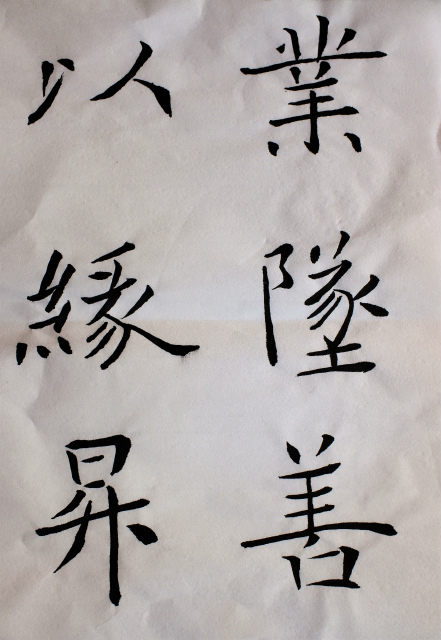 業墜善
以縁昇